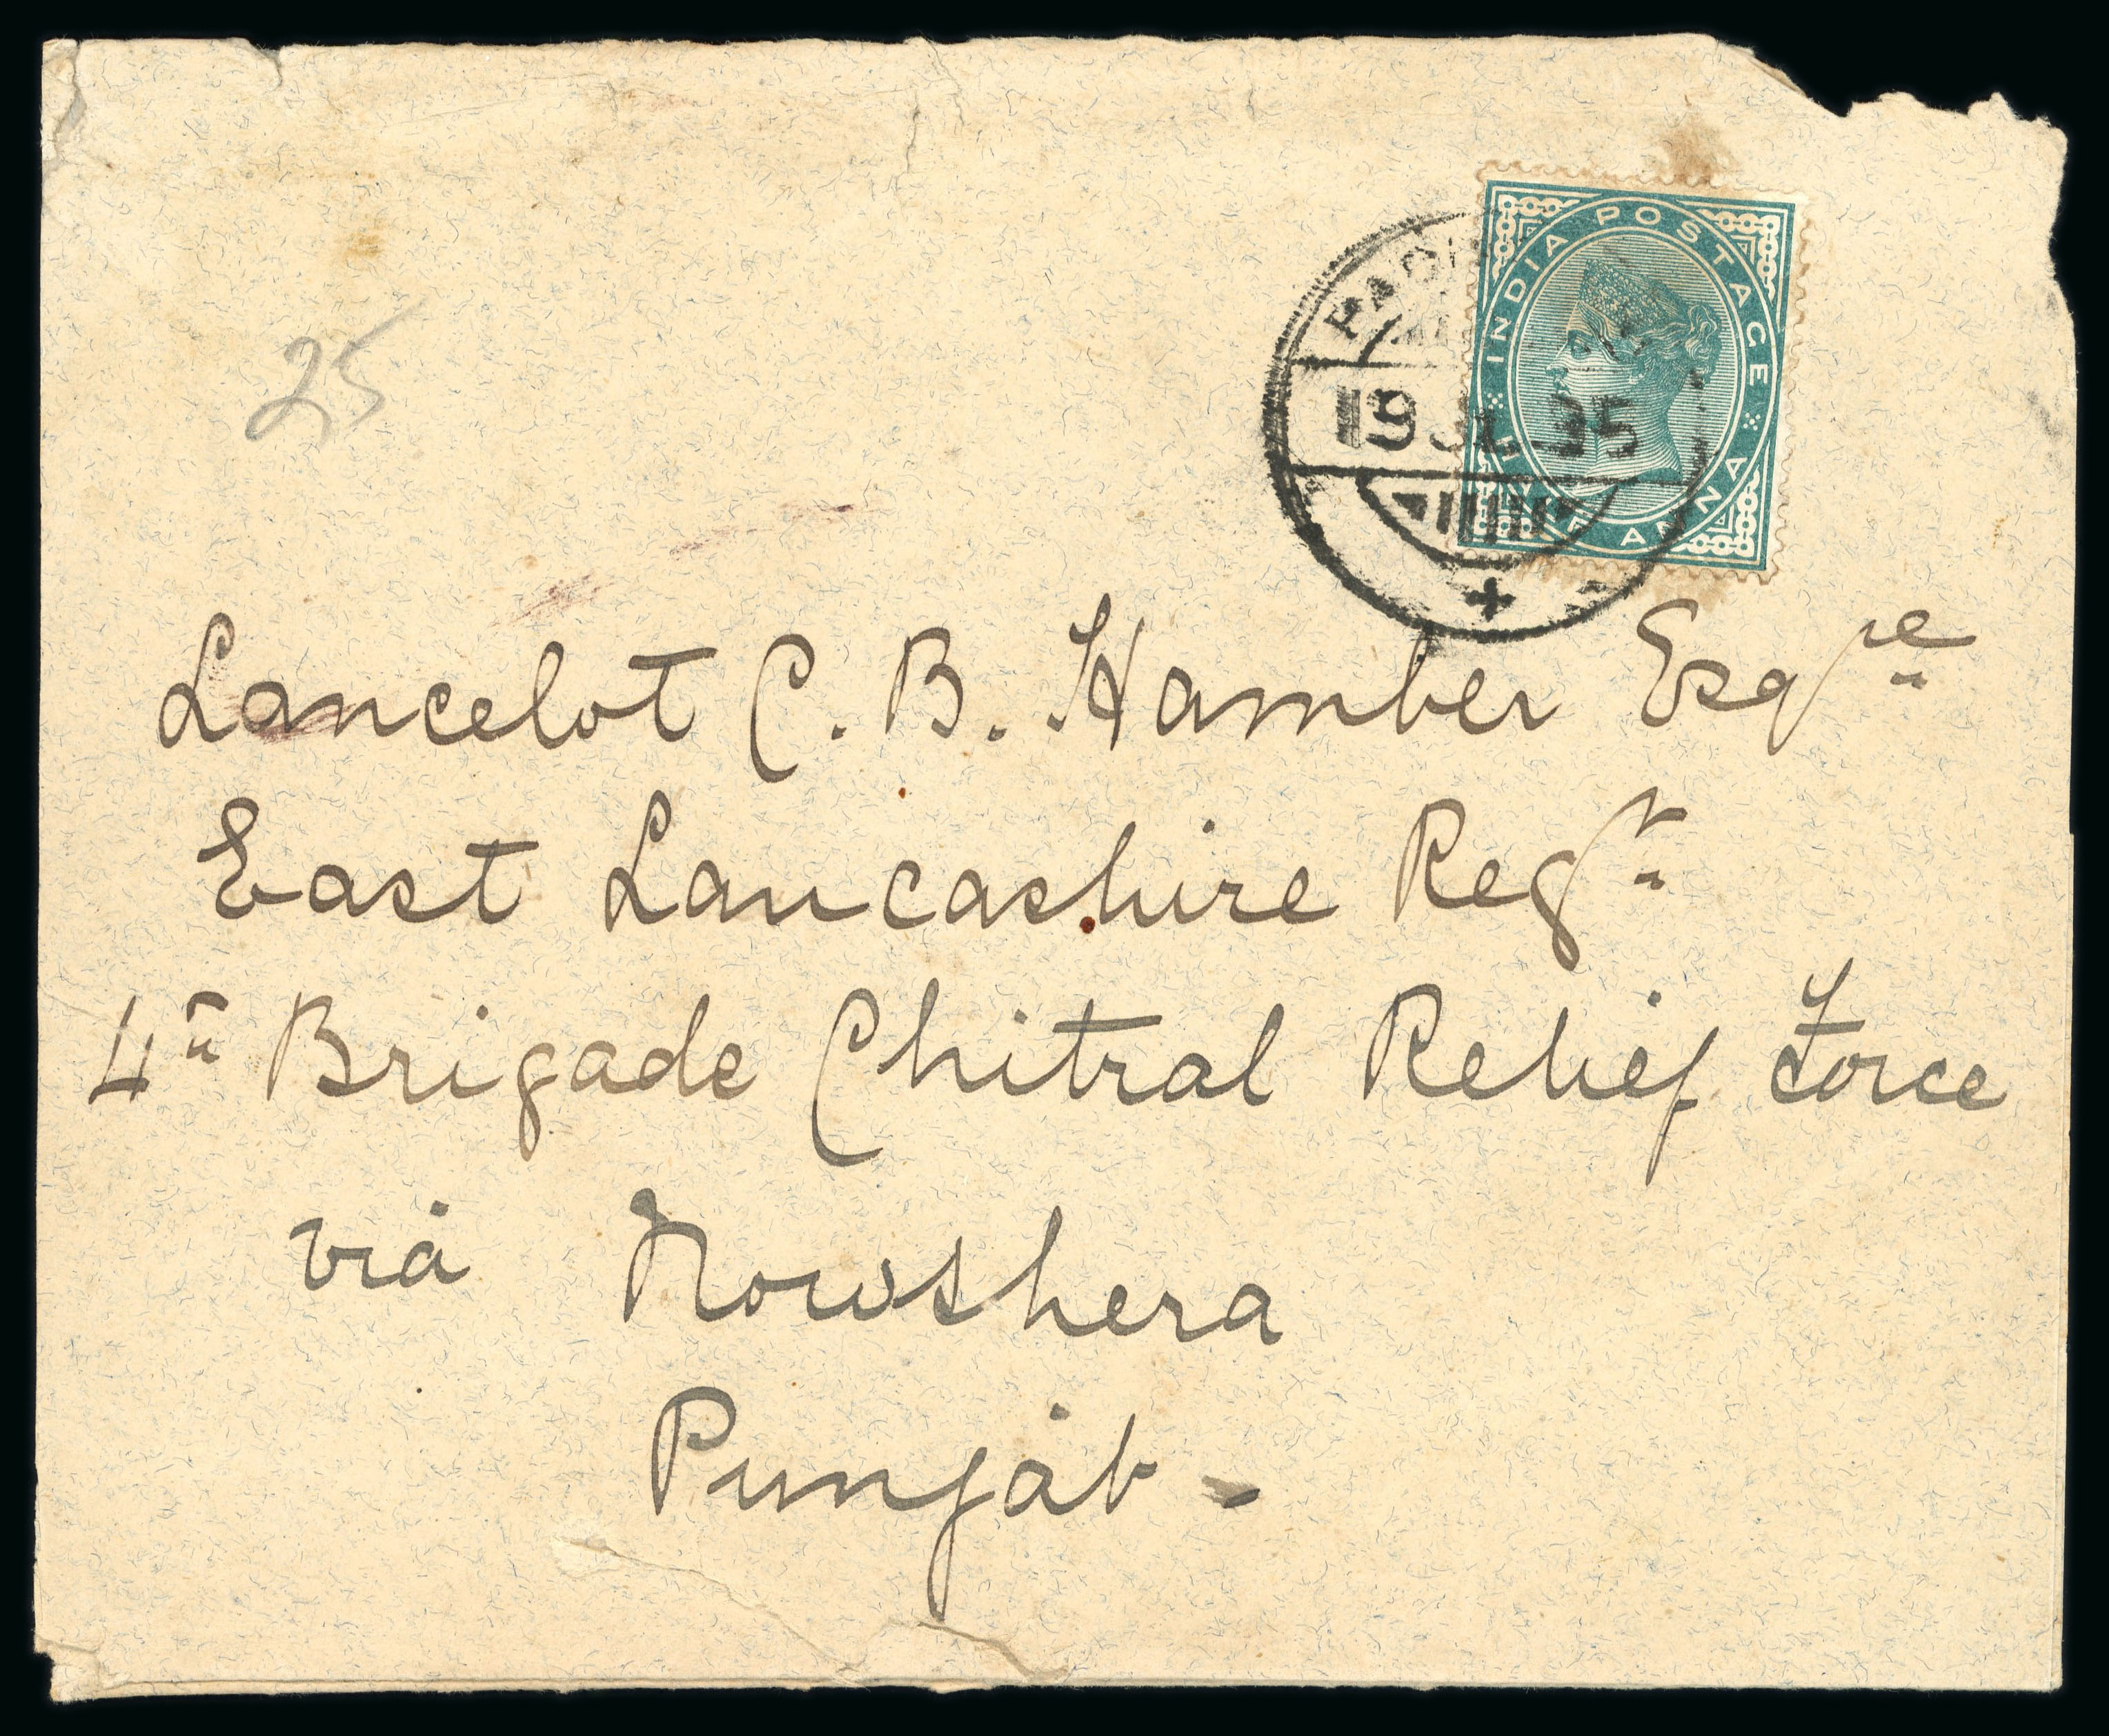 25
INDIA POSTAGE
HALF ANNA
19 JL 95
Lancelot C. B. Hamber Esqre
East Lancashire Regt
4th Brigade Chitral Relief Force
via Nowshera
Punjab -